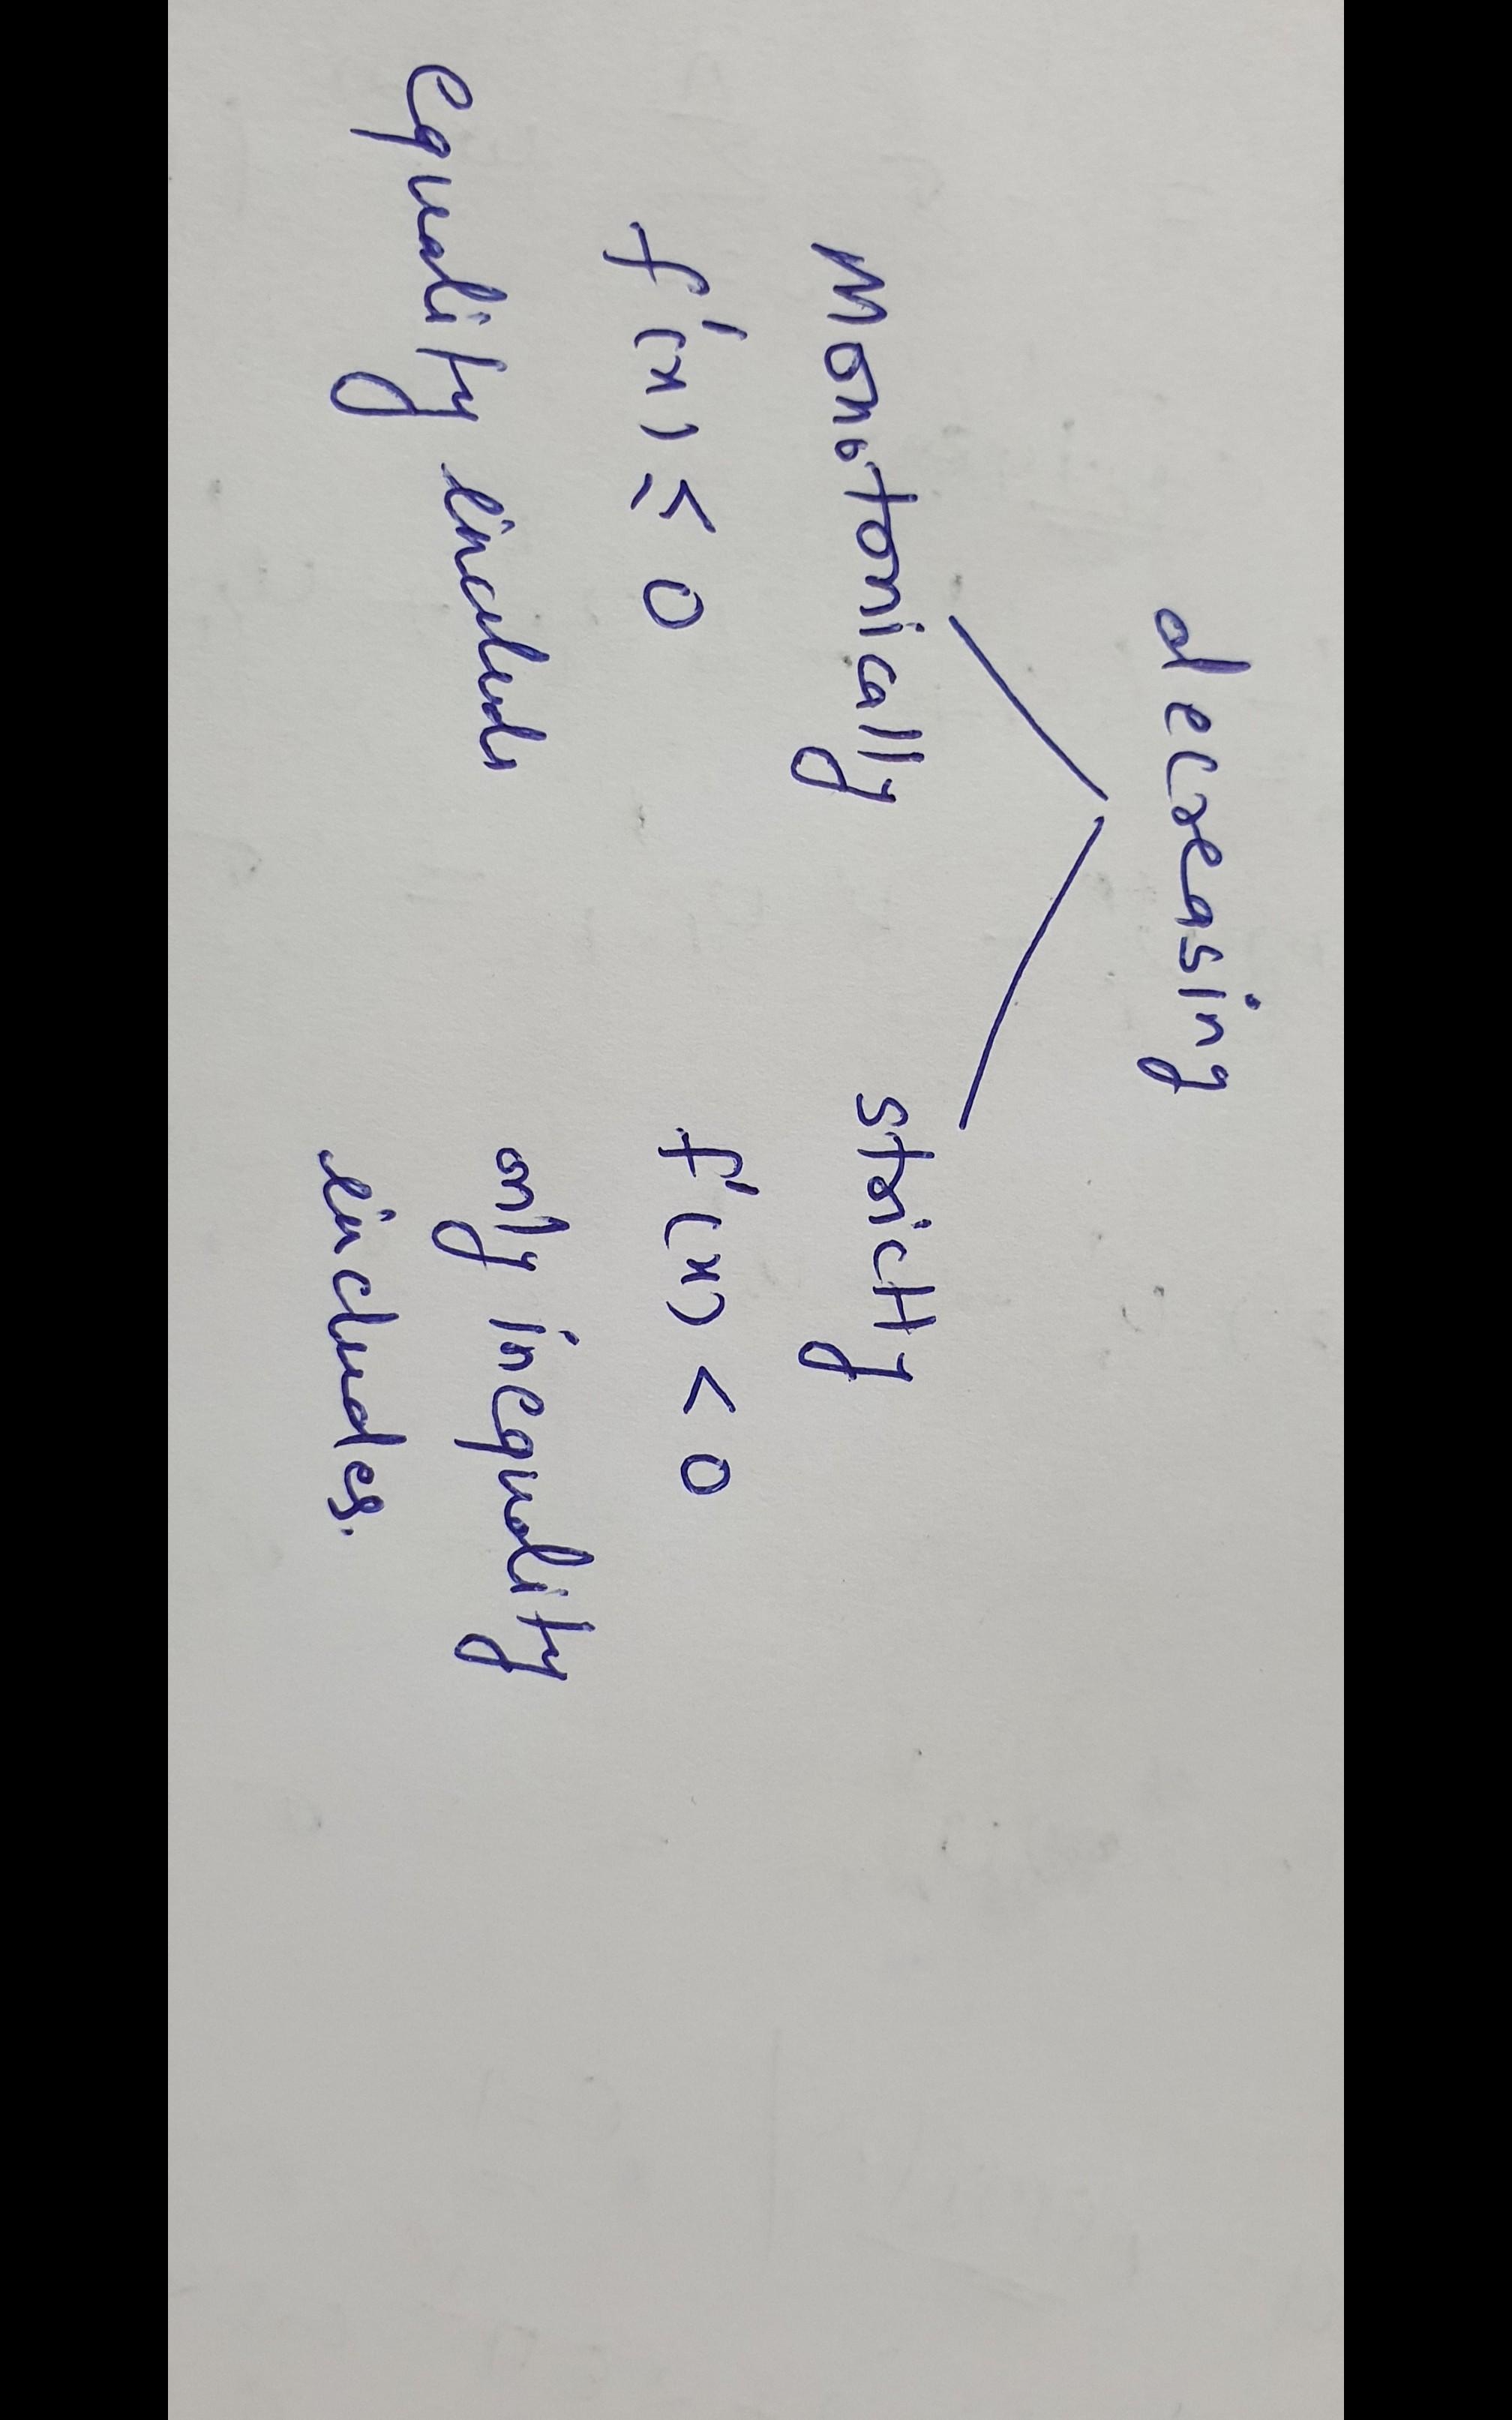 decreasing
Monotonically
strictly
f'(x) ≤ 0
f'(x) < 0
equality includes
only inequality
includes.